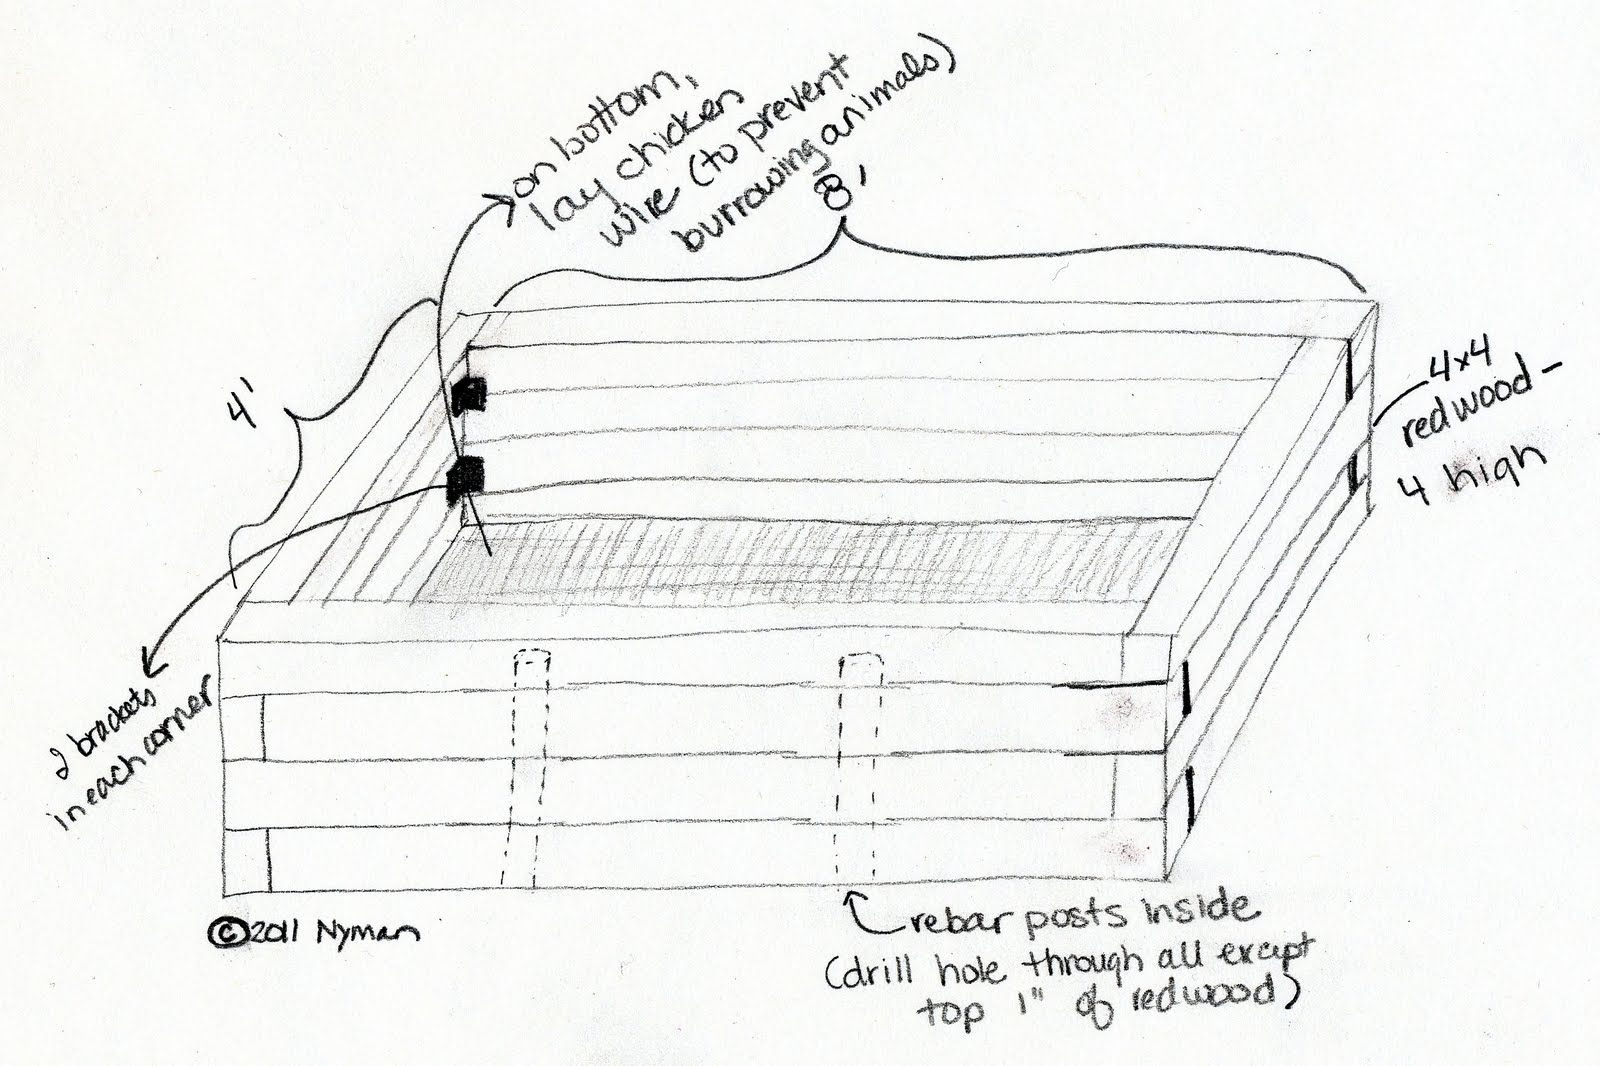 on bottom,
lay chicken
wire (to prevent
burrowing animals)
8'
4'
4x4
redwood -
4 high
2 brackets
in each corner
©2011 Nyman
rebar posts inside
(drill hole through all except
top 1" of redwood)